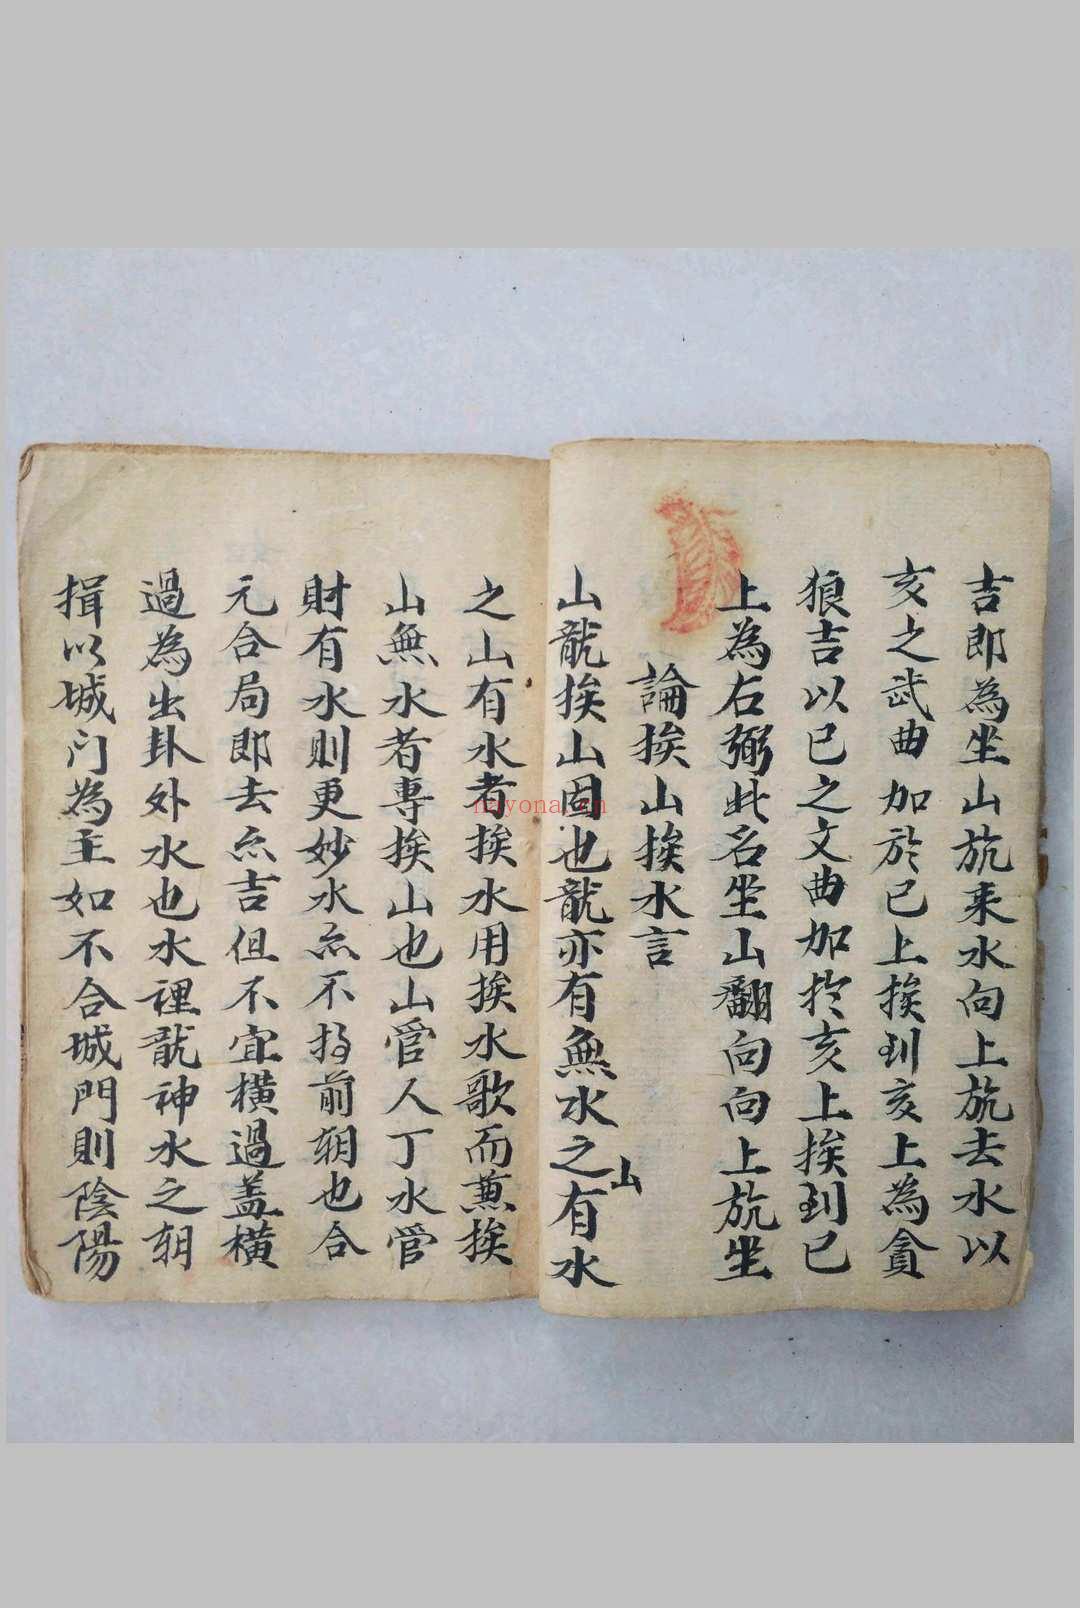 吉郎為坐山旂来水向上旂去水以
亥之武曲加於巳上挨到亥上為貪
狼吉以巳之文曲加於亥上挨到巳
上為右弼此名坐山翻向向上旂坐
論挨山挨水言
山龍挨山固也龍亦有無水之山有水
之山有水者挨水用挨水歌而蕙挨
山無水者專挨山也山管人丁水管
財有水則更妙水亦不拘前朝也合
元合局郎去亦吉但不宜横過盖横
過為出卦外水也水裡龍神水之朝
揖以城门為主如不合城門則陰陽
nayona.cn